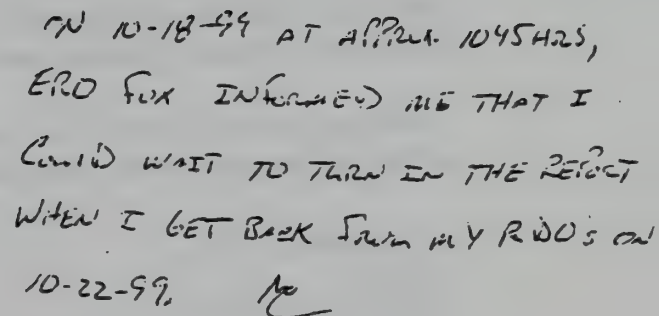 ON 10-18-99 AT APPROX. 1045HRS,
ERO FOX INFORMED ME THAT I
COULD WAIT TO TURN IN THE REPORT
WHEN I GET BACK FROM MY RDO'S ON
10-22-99.